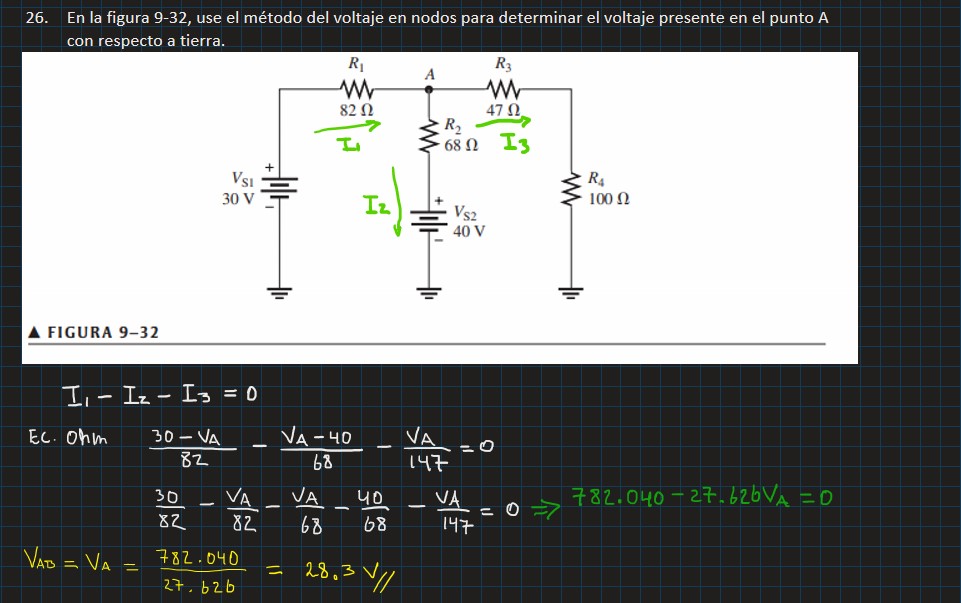 26. En la figura 9-32, use el método del voltaje en nodos para determinar el voltaje presente en el punto A
con respecto a tierra.
R₁
A
R₃
82 Ω
47 Ω
I₁
R₂
68 Ω
I₃
VS1
30 V
+
−
I₂
+
−
VS2
40 V
R₄
100 Ω
▲ FIGURA 9–32
I₁ − I₂ − I₃ = 0
Ec. Ohm (30 − VA)/82 − (VA − 40)/68 − VA/147 = 0
30/82 − VA/82 − VA/68 − 40/68 − VA/147 = 0 ⇒ 782.040 − 27.626VA = 0
VAB = VA = 782.040/27.626 = 28.3 V//